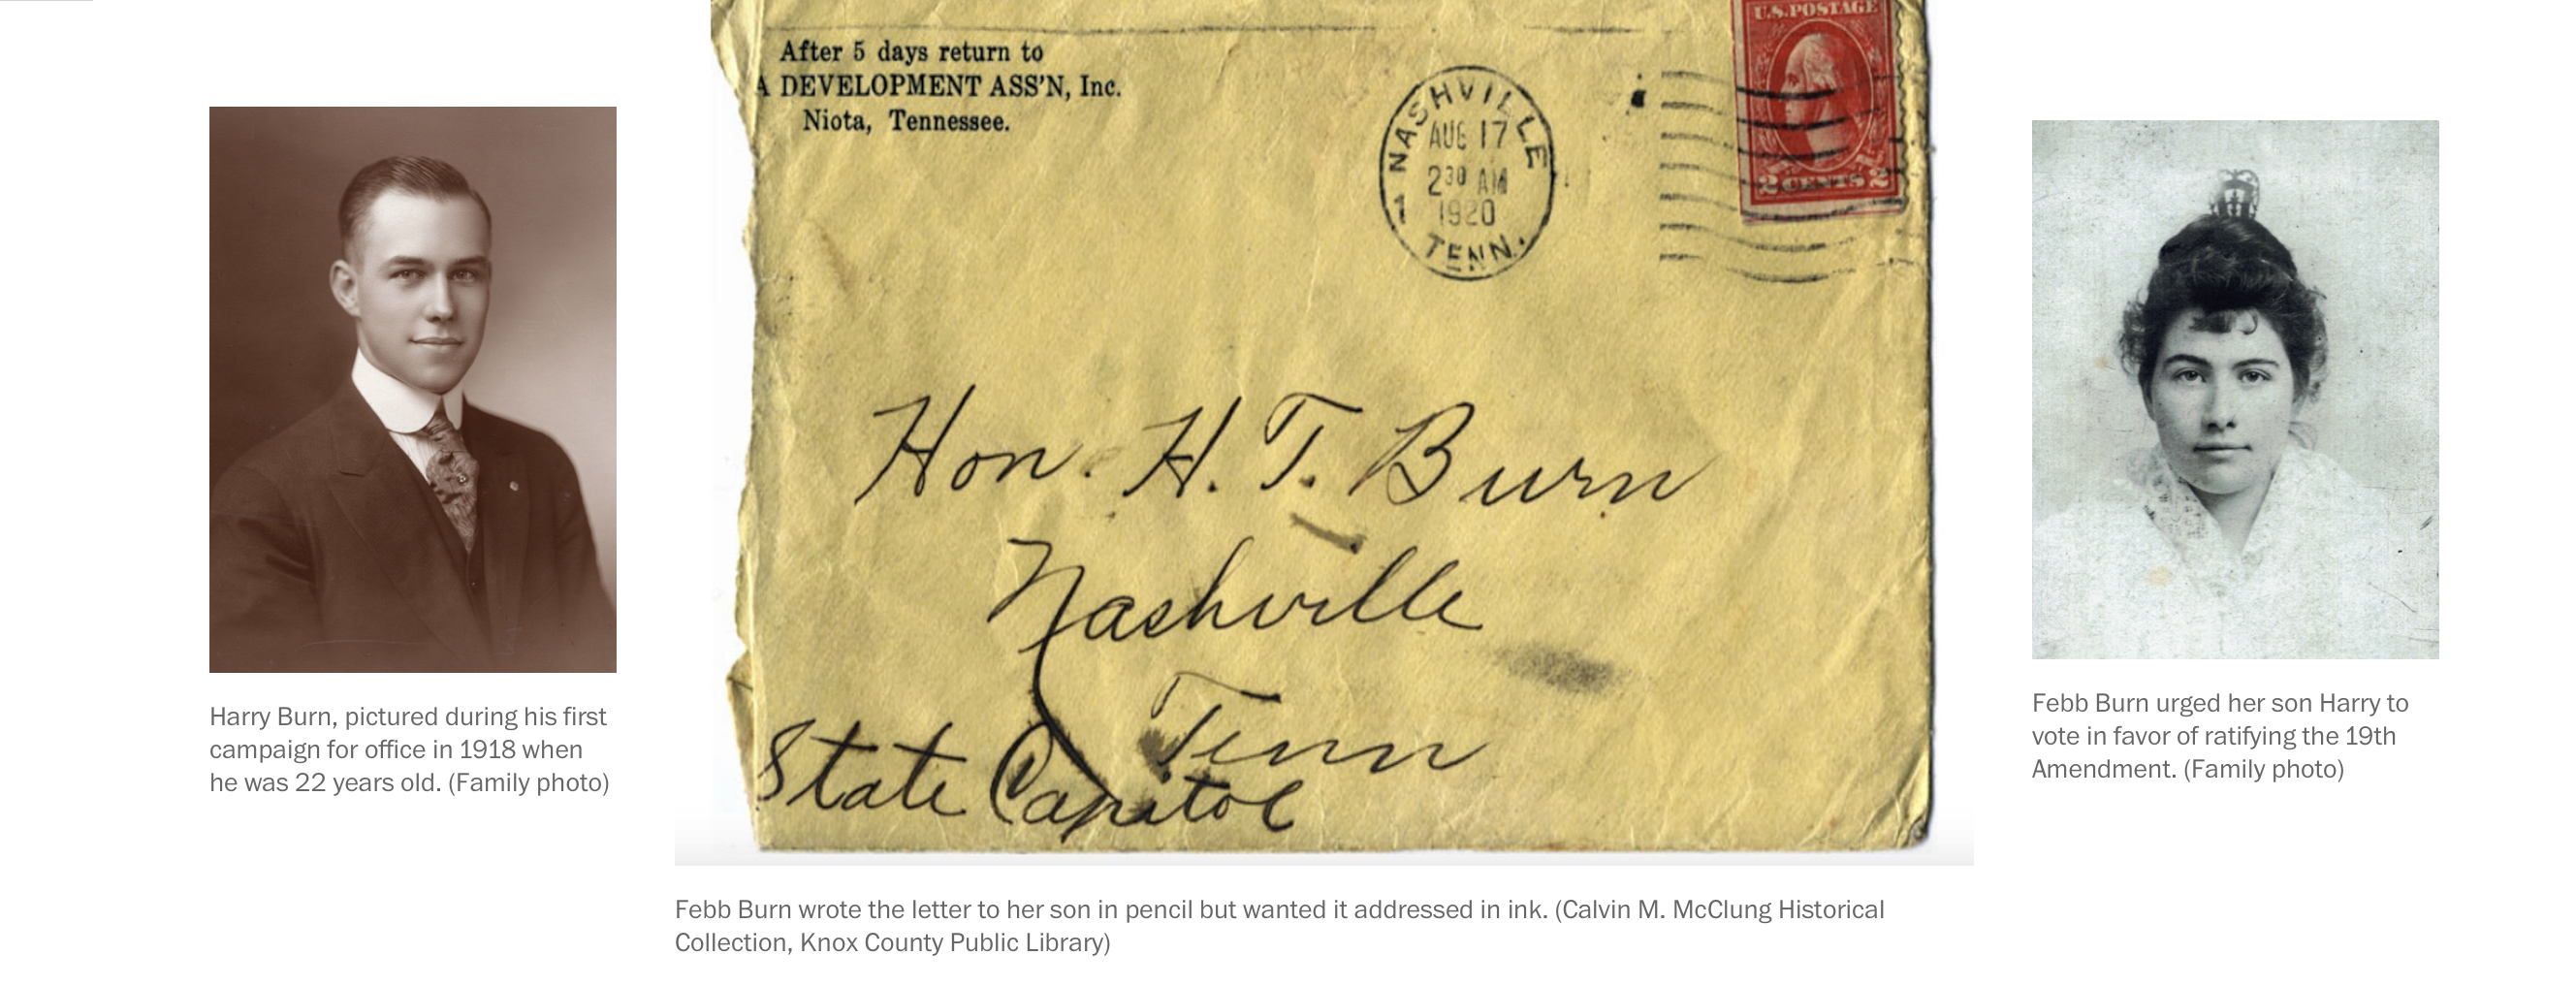 After 5 days return to
A DEVELOPMENT ASS'N, Inc.
Niota, Tennessee.
NASHVILLE
AUG 17
2 30 AM
1920
1
TENN.
U.S. POSTAGE
2 CENTS 2
Hon. H. T. Burn
Nashville
Tenn
State Capitol
Harry Burn, pictured during his first
campaign for office in 1918 when
he was 22 years old. (Family photo)
Febb Burn wrote the letter to her son in pencil but wanted it addressed in ink. (Calvin M. McClung Historical
Collection, Knox County Public Library)
Febb Burn urged her son Harry to
vote in favor of ratifying the 19th
Amendment. (Family photo)